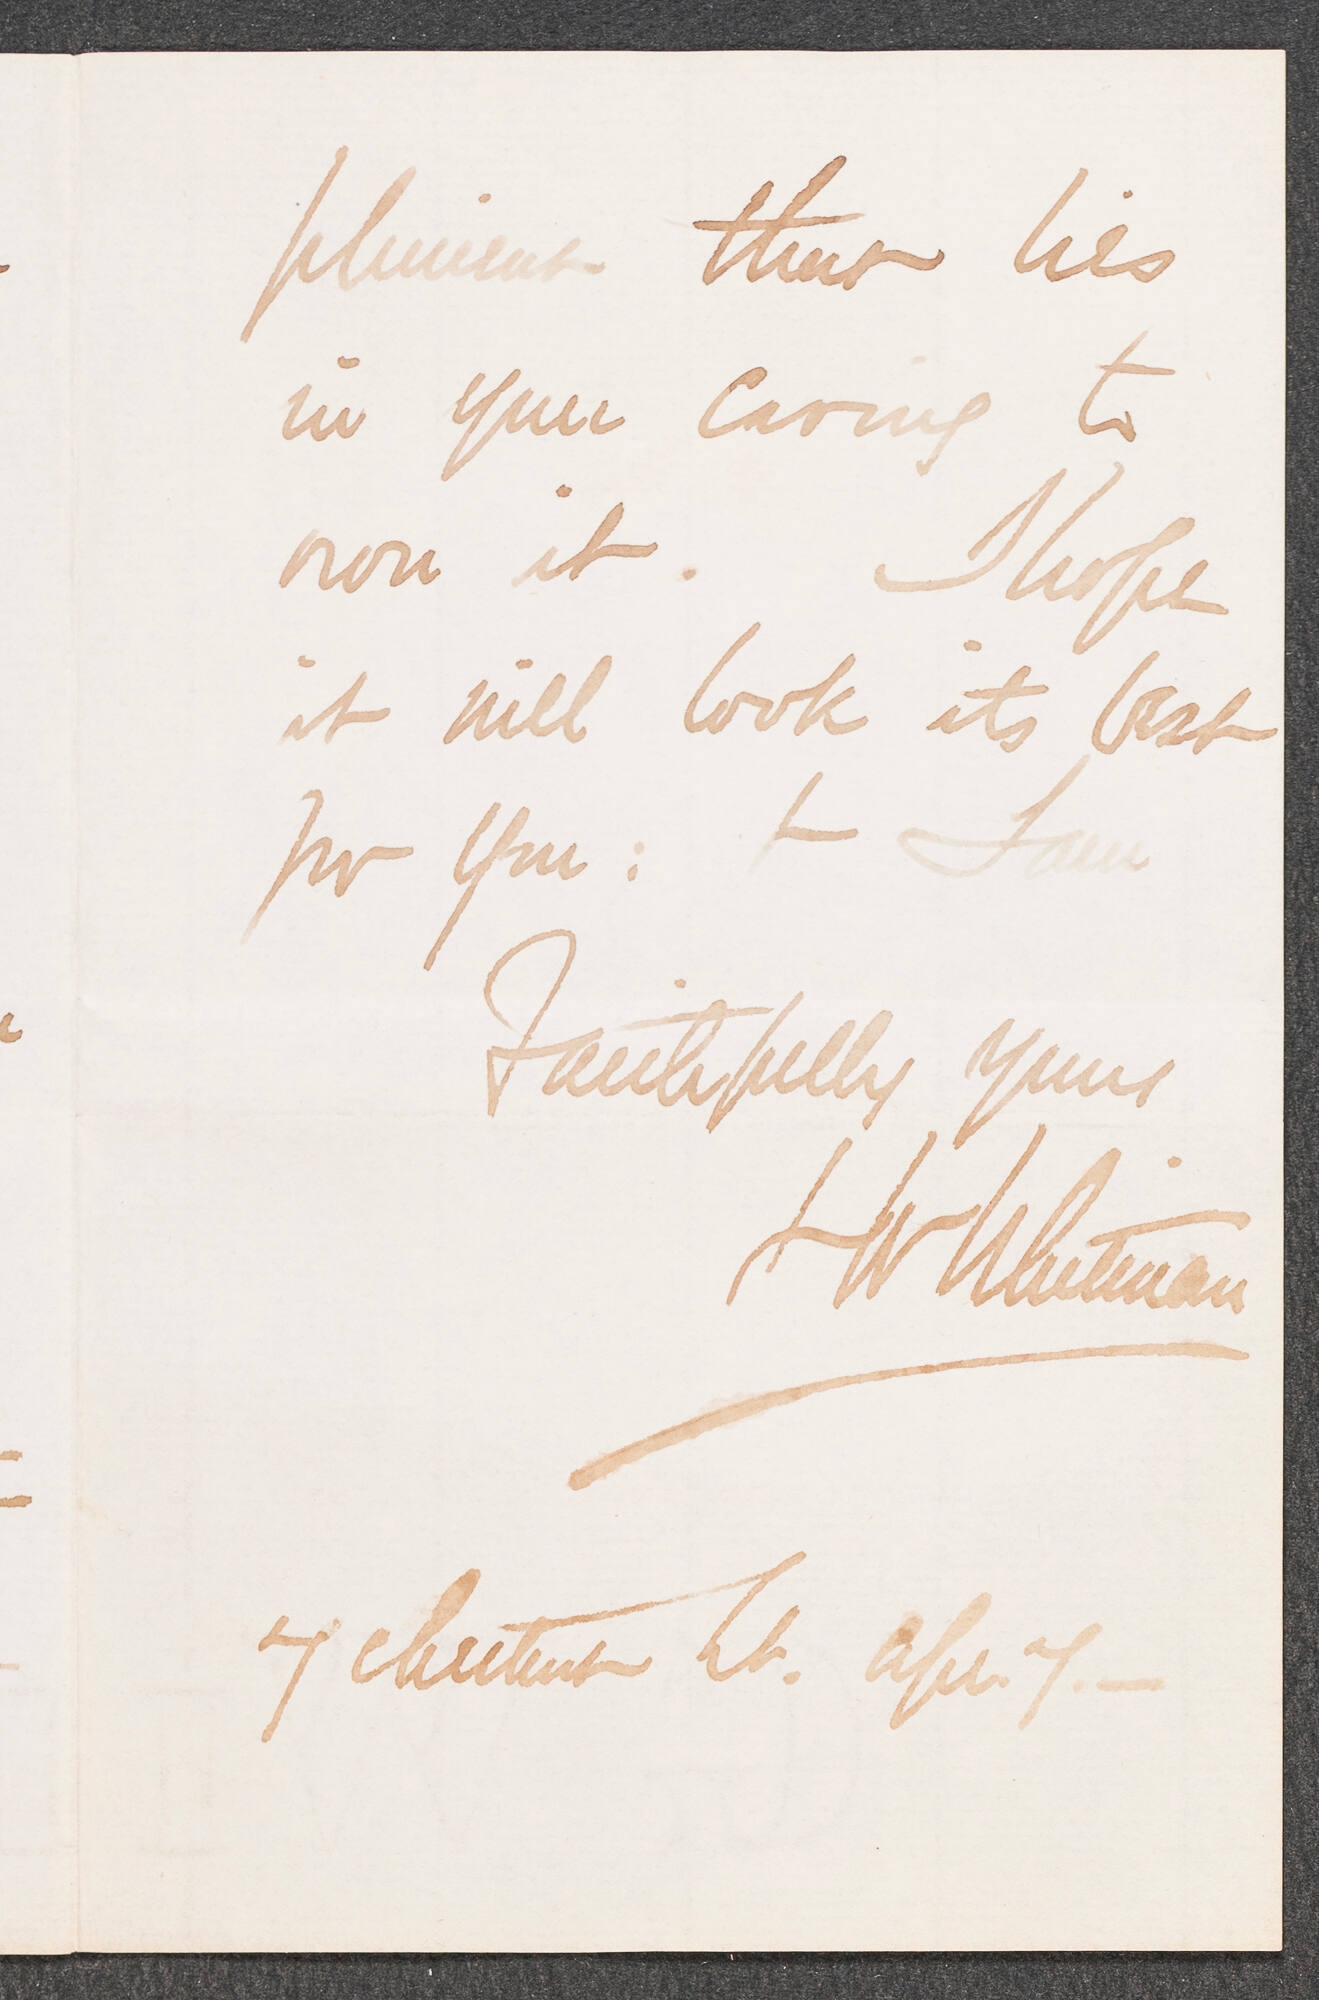 pliment that lies
in your caring to
own it. I hope
it will look its best
for you: & I am
Faithfully yours
Whitman
7 Chestnut St. Apr. 7. —